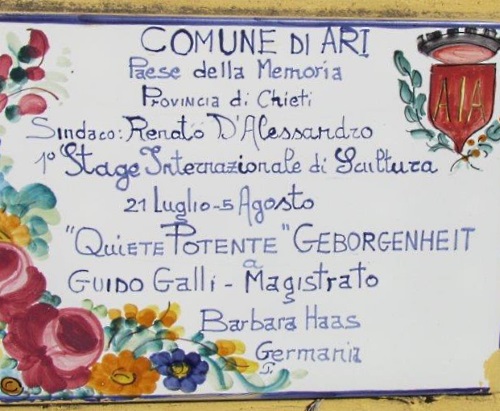 COMUNE DI ARI
Paese della Memoria
Provincia di Chieti
Sindaco: Renato D'Alessandro
1° Stage Internazionale di Scultura
21 Luglio-5 Agosto
"QUIETE POTENTE" GEBORGENHEIT
a
GUIDO GALLI - MAGISTRATO
Barbara Haas
Germania
AIA